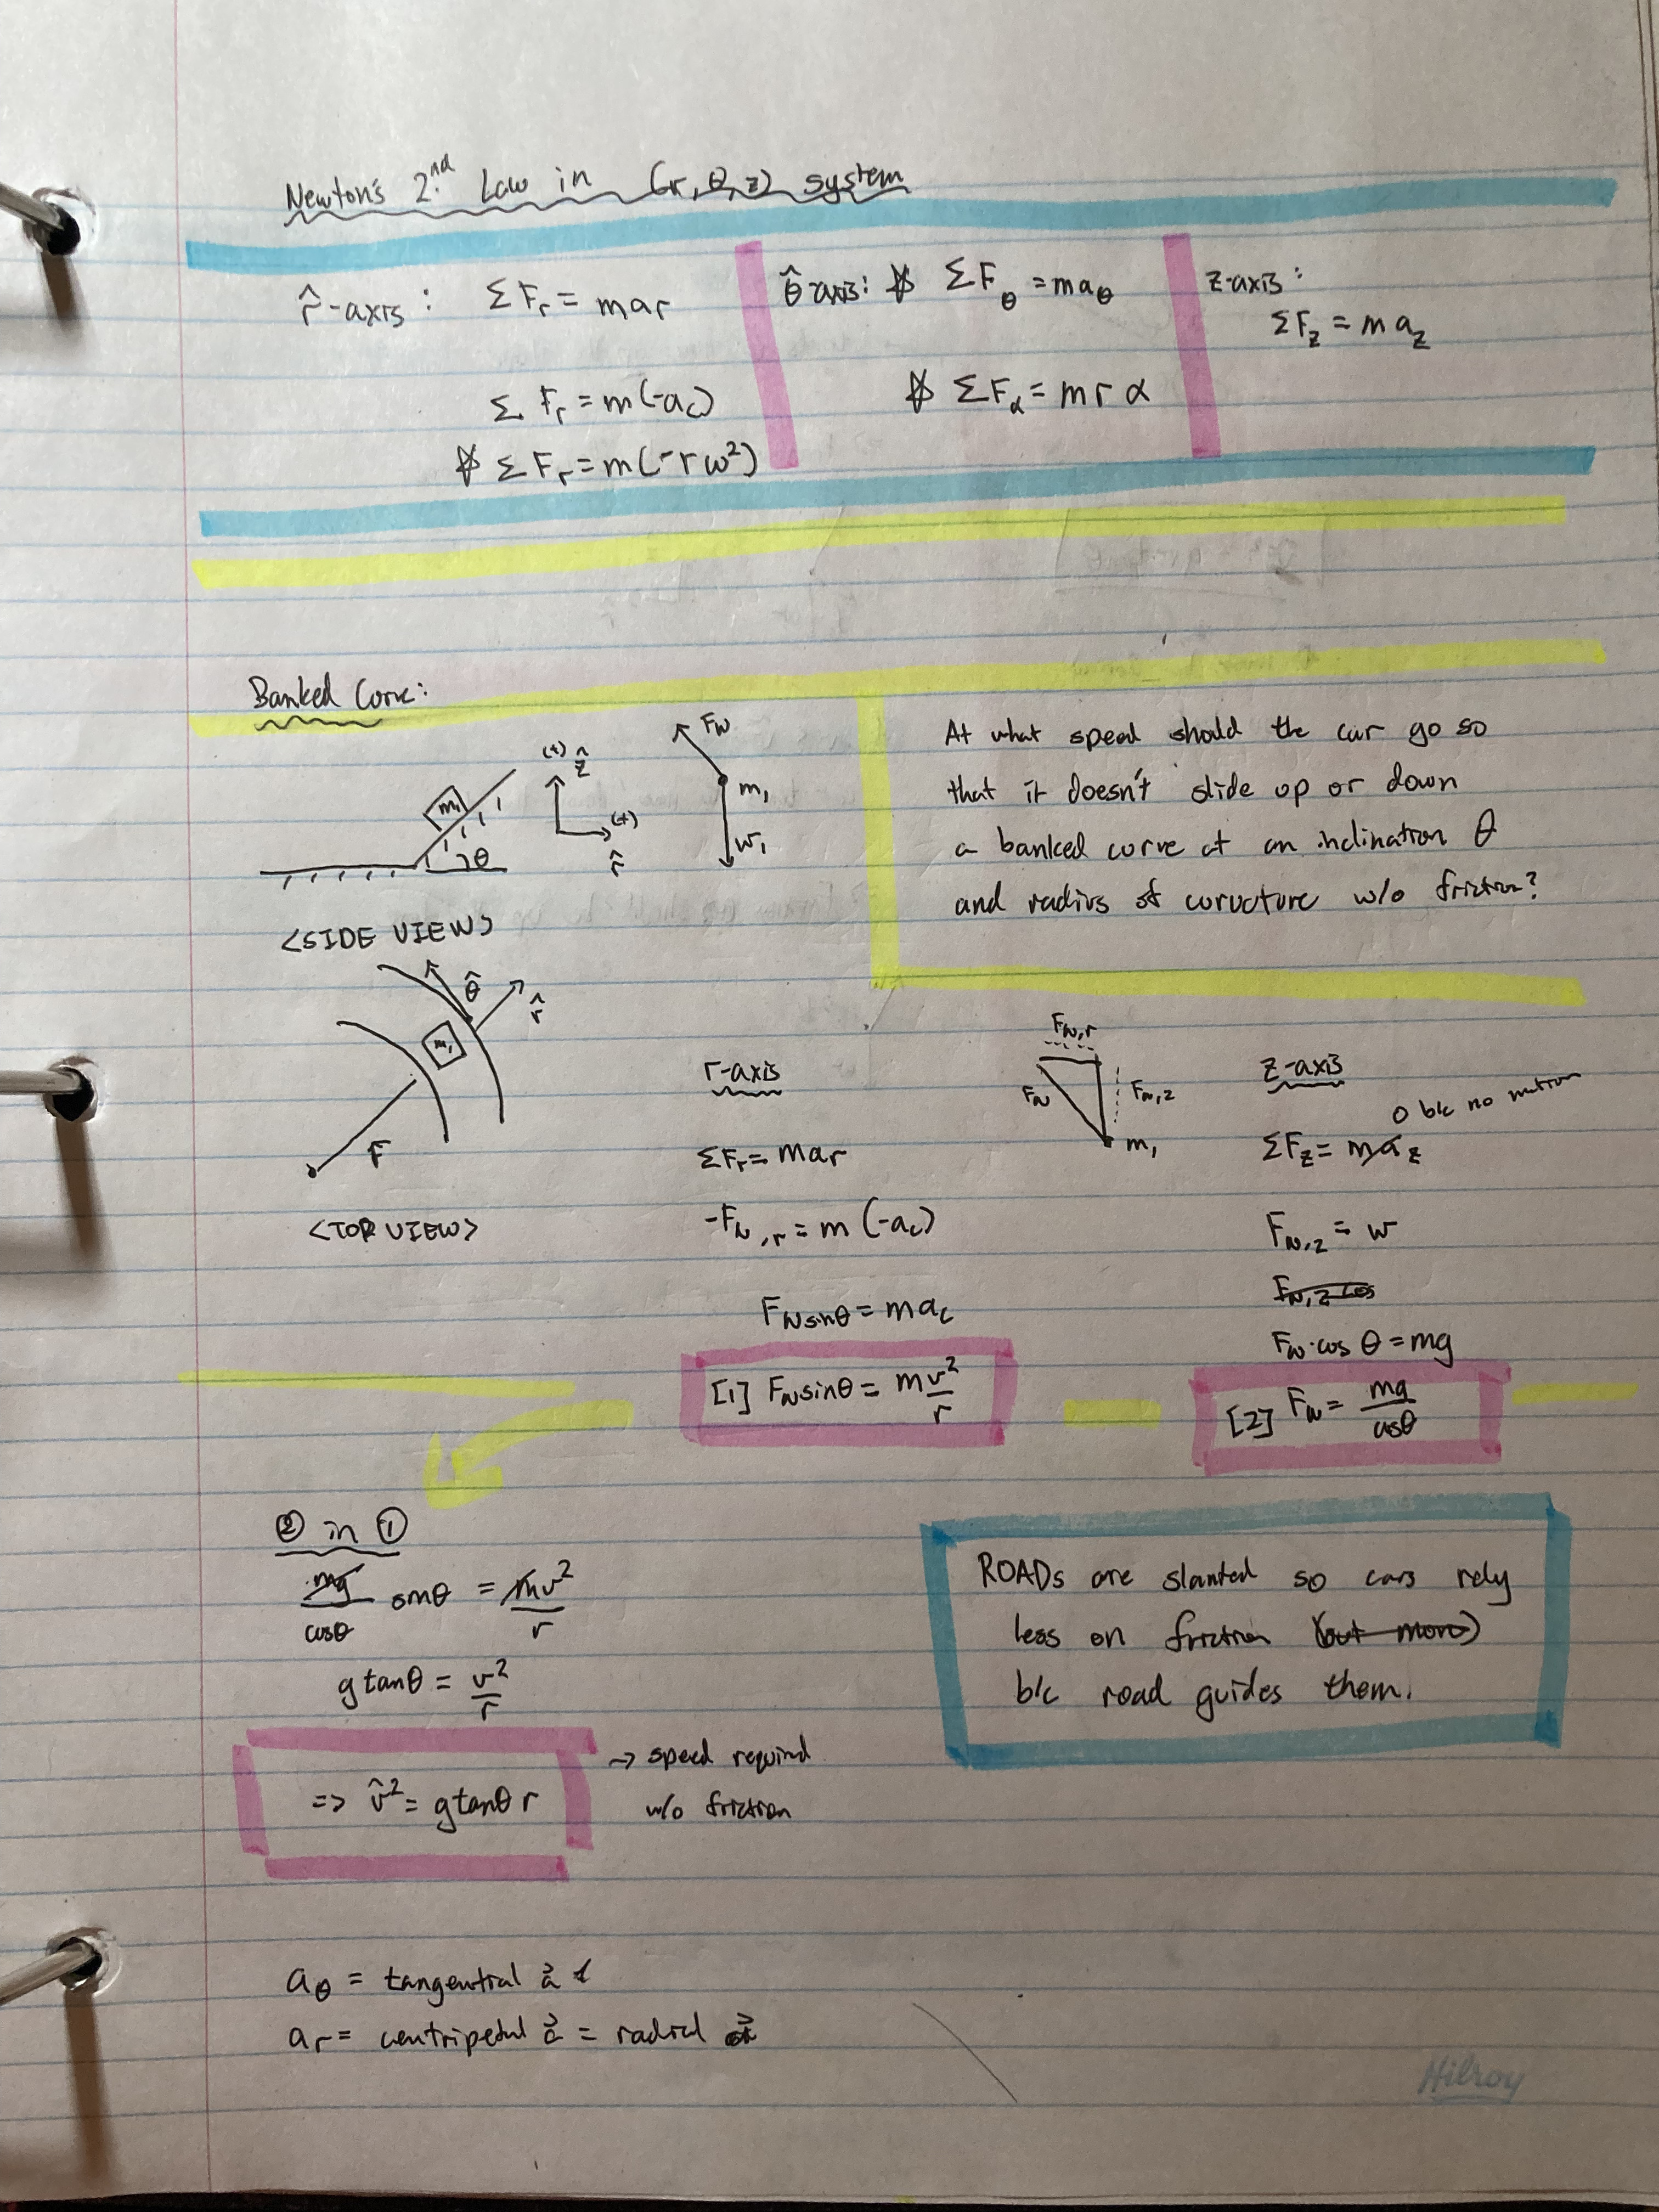 Newton's 2nd Law in (r, θ, z) system
r̂-axis: ΣFr = mar
ΣFr = m(-ac)
ΣFr = m(-rω²)
θ̂-axis: ΣFθ = maθ
ΣFα = mrα
z-axis:
ΣFz = maz
Banked Curve:
m₁
θ
(+) ẑ
(+)
r̂
FN
m₁
W₁
<SIDE VIEW>
At what speed should the car go so
that it doesn't slide up or down
a banked curve at an inclination θ
and radius of curvature w/o friction?
θ̂
r̂
m₁
r
<TOP VIEW>
r-axis
ΣFr = mar
-FN,r = m(-ac)
FNsinθ = mac
[1] FNsinθ = mv²/r
FN,r
FN
FN,z
m₁
z-axis
0 b/c no motion
ΣFz = maz
FN,z = w
FN,z cos
FN·cos θ = mg
[2] FN = mg/cosθ
② in ①
mg/cosθ sinθ = mv²/r
g tanθ = v²/r
=> v̂² = g tanθ r
→ speed required
w/o friction
ROADs are slanted so cars rely
less on friction (but more)
b/c road guides them.
aθ = tangential a⃗
ar = centripetal a⃗ = radial a⃗
Hilroy